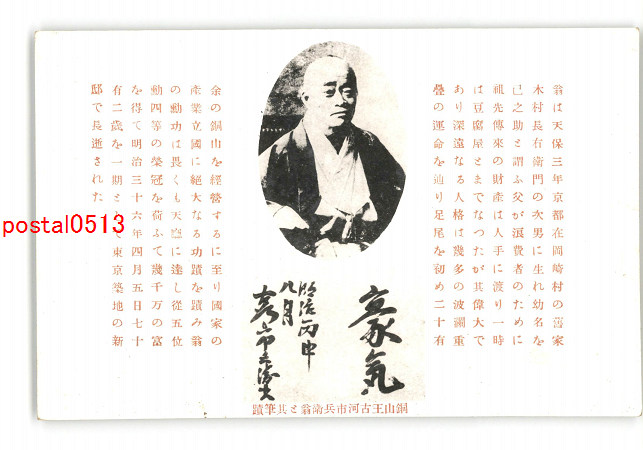 翁は天保三年京都在岡崎村の舊家
木村長右衛門の次男に生れ幼名を
已之助と謂ふ父が浪費者のために
祖先傳來の財産は人手に渡り一時
は豆腐屋とまでなつたが其偉大で
あり深遠なる人格は幾多の波瀾重
疊の運命を辿り足尾を初め二十有
豪氣
明治丙申
九月
余の銅山を經營するに至り國家の
産業立國に絕大なる功蹟を蹟み翁
の勳功は畏くも天聽に達し從五位
勳四等の榮冠を荷ふて幾千万の富
を得て明治三十六年四月五日七十
有二歲を一期として東京築地の新
邸で長逝された
銅山王古河市兵衛翁と其筆蹟
postal0513